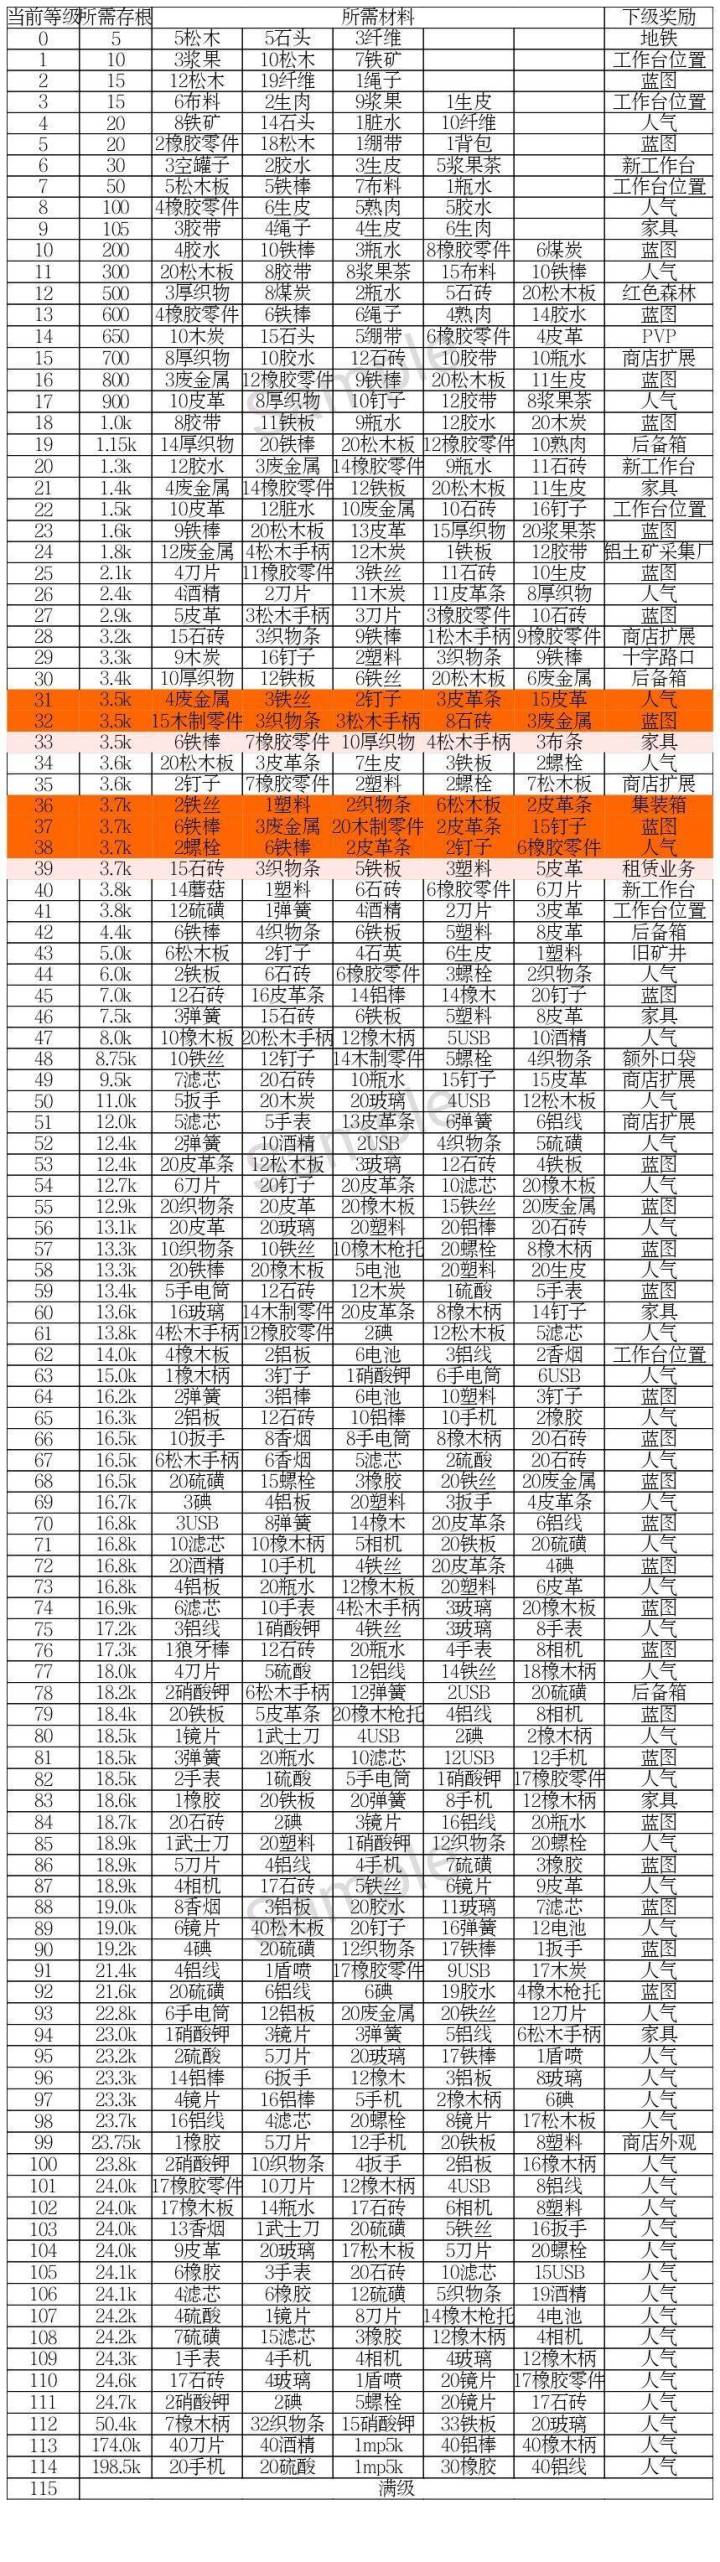 当前等级 所需存根 所需材料 下级奖励
0 5 5松木 5石头 3纤维 地铁
1 10 3浆果 10松木 7铁矿 工作台位置
2 15 12松木 19纤维 1绳子 蓝图
3 15 6布料 2生肉 9浆果 1生皮 工作台位置
4 20 8铁矿 14石头 1脏水 10纤维 人气
5 20 2橡胶零件 18松木 1绷带 1背包 蓝图
6 30 3空罐子 2胶水 3生皮 5浆果茶 新工作台
7 50 5松木板 5铁棒 7布料 1瓶水 工作台位置
8 100 4橡胶零件 6生皮 5熟肉 5胶水 人气
9 105 3胶带 4绳子 4生皮 6生肉 家具
10 200 4胶水 10铁棒 3瓶水 8橡胶零件 6煤炭 蓝图
11 300 20松木板 8胶带 8浆果茶 15布料 10铁棒 人气
12 500 3厚织物 8煤炭 2瓶水 5石砖 20松木板 红色森林
13 600 4橡胶零件 6铁棒 6绳子 4熟肉 14胶水 蓝图
14 650 10木炭 15石头 5绷带 6橡胶零件 4皮革 PVP
15 700 8厚织物 10胶水 12石砖 10胶带 10瓶水 商店扩展
16 800 3废金属 12橡胶零件 9铁棒 20松木板 11生皮 蓝图
17 900 10皮革 8厚织物 10钉子 12胶带 8浆果茶 人气
18 1.0k 8胶带 11铁板 9瓶水 12胶水 20木炭 蓝图
19 1.15k 14厚织物 20铁棒 20松木板 12橡胶零件 10熟肉 后备箱
20 1.3k 12胶水 3废金属 14橡胶零件 9瓶水 11石砖 新工作台
21 1.4k 4废金属 14橡胶零件 12铁板 20松木板 11生皮 家具
22 1.5k 10皮革 12脏水 10废金属 10石砖 16钉子 工作台位置
23 1.6k 9铁棒 20松木板 13皮革 15厚织物 20浆果茶 蓝图
24 1.8k 12废金属 4松木手柄 12木炭 1铁板 12胶带 铝土矿采集厂
25 2.1k 4刀片 11橡胶零件 3铁丝 11石砖 10生皮 蓝图
26 2.4k 4酒精 2刀片 11木炭 11皮革条 8厚织物 人气
27 2.9k 5皮革 3松木手柄 3刀片 3橡胶零件 10石砖 蓝图
28 3.2k 15石砖 3织物条 9铁棒 1松木手柄 9橡胶零件 商店扩展
29 3.3k 9木炭 16钉子 2塑料 3织物条 9铁棒 十字路口
30 3.4k 10厚织物 12铁板 6铁丝 20松木板 6废金属 后备箱
31 3.5k 4废金属 3铁丝 2钉子 3皮革条 15皮革 人气
32 3.5k 15木制零件 3织物条 3松木手柄 8石砖 3废金属 蓝图
33 3.5k 6铁棒 7橡胶零件 10厚织物 4松木手柄 3布条 家具
34 3.6k 20松木板 3皮革条 7生皮 3铁板 2螺栓 人气
35 3.6k 2钉子 7橡胶零件 2塑料 2螺栓 7松木板 商店扩展
36 3.7k 2铁丝 1塑料 2织物条 6松木板 2皮革条 集装箱
37 3.7k 6铁棒 3废金属 20木制零件 2皮革条 15钉子 蓝图
38 3.7k 2螺栓 6铁棒 2皮革条 2钉子 6橡胶零件 人气
39 3.7k 15石砖 3织物条 5铁板 3塑料 5皮革 租赁业务
40 3.8k 14蘑菇 1塑料 6石砖 6橡胶零件 6刀片 新工作台
41 3.8k 12硫磺 1弹簧 4酒精 2刀片 3皮革 工作台位置
42 4.4k 6铁棒 4织物条 6铁板 5塑料 8皮革 后备箱
43 5.0k 6松木板 2钉子 4石英 6生皮 1塑料 旧矿井
44 6.0k 2铁板 6石砖 6橡胶零件 3螺栓 2织物条 人气
45 7.0k 12石砖 16皮革条 14铝棒 14橡木 20钉子 蓝图
46 7.5k 3弹簧 15石砖 6铁板 5塑料 8皮革 家具
47 8.0k 10橡木板 20松木手柄 12橡木柄 5USB 10酒精 人气
48 8.75k 10铁丝 12钉子 14木制零件 5螺栓 4织物条 额外口袋
49 9.5k 7滤芯 20石砖 10瓶水 15钉子 15皮革 商店扩展
50 11.0k 5扳手 20木炭 20玻璃 4USB 12松木板 人气
51 12.0k 5滤芯 5手表 13皮革条 6弹簧 6铝线 商店扩展
52 12.4k 2弹簧 10酒精 2USB 4织物条 5硫磺 人气
53 12.4k 20皮革条 12松木板 3玻璃 12石砖 4铁板 蓝图
54 12.7k 6刀片 20钉子 20皮革条 10滤芯 20橡木板 人气
55 12.9k 20织物条 20皮革 20橡木板 15铁丝 20废金属 蓝图
56 13.1k 20皮革 20玻璃 20塑料 20铝棒 20石砖 人气
57 13.3k 10织物条 10铁丝 10橡木枪托 20螺栓 8橡木柄 蓝图
58 13.3k 20铁棒 20橡木板 5电池 20塑料 20生皮 人气
59 13.4k 5手电筒 12石砖 12木炭 1硫酸 5手表 蓝图
60 13.6k 16玻璃 14木制零件 20皮革条 8橡木柄 14钉子 家具
61 13.8k 4松木手柄 12橡胶零件 2碘 12松木板 5滤芯 人气
62 14.0k 4橡木板 2铝板 6电池 3铝线 2香烟 工作台位置
63 15.0k 1橡木柄 3钉子 1硝酸钾 6手电筒 6USB 人气
64 16.2k 2弹簧 3铝棒 6电池 10塑料 3钉子 蓝图
65 16.3k 2铝板 12石砖 10铝棒 10手机 2橡胶 人气
66 16.5k 10扳手 8香烟 8手电筒 8橡木柄 20石砖 蓝图
67 16.5k 6松木手柄 6香烟 5滤芯 2硫酸 20石砖 人气
68 16.5k 20硫磺 15螺栓 3橡胶 20铁丝 20废金属 蓝图
69 16.7k 3碘 4铝板 20塑料 3扳手 4皮革条 人气
70 16.8k 3USB 8弹簧 14橡木 20皮革条 6铝线 蓝图
71 16.8k 10滤芯 10橡木柄 5相机 20铁板 20硫磺 人气
72 16.8k 20酒精 10手机 4铁丝 20皮革条 4碘 蓝图
73 16.8k 4铝板 20瓶水 12橡木板 20塑料 6皮革 人气
74 16.9k 6滤芯 10手表 4松木手柄 3玻璃 20橡木板 蓝图
75 17.2k 3铝线 1硝酸钾 4铁丝 3玻璃 8手表 人气
76 17.3k 1狼牙棒 12石砖 20瓶水 4手表 8相机 蓝图
77 18.0k 4刀片 5硫酸 12铝线 14铁丝 18橡木柄 人气
78 18.2k 2硝酸钾 6松木手柄 12弹簧 2USB 20硫磺 后备箱
79 18.4k 20铁板 5皮革条 20橡木枪托 4铝线 8相机 蓝图
80 18.5k 1镜片 1武士刀 4USB 2碘 2橡木柄 人气
81 18.5k 3弹簧 20瓶水 10滤芯 12USB 12手机 蓝图
82 18.5k 2手表 1硫酸 5手电筒 1硝酸钾 17橡胶零件 人气
83 18.6k 1橡胶 20铁板 20弹簧 8手机 12橡木柄 家具
84 18.7k 20石砖 2碘 3镜片 16铝线 20瓶水 蓝图
85 18.9k 1武士刀 20塑料 1硝酸钾 12织物条 20螺栓 人气
86 18.9k 5刀片 4铝线 4手机 7硫磺 3橡胶 蓝图
87 18.9k 4相机 17石砖 5铁丝 6镜片 9皮革 人气
88 19.0k 8香烟 3铝板 20胶水 11玻璃 7滤芯 蓝图
89 19.0k 6镜片 40松木板 20钉子 16弹簧 12电池 人气
90 19.2k 4碘 20硫磺 12织物条 17铁棒 1扳手 蓝图
91 21.4k 4铝线 1盾喷 17橡胶零件 9USB 17木炭 人气
92 21.6k 20硫磺 6铝线 6碘 19胶水 4橡木枪托 蓝图
93 22.8k 6手电筒 12铝板 20废金属 20铁丝 12刀片 人气
94 23.0k 1硝酸钾 3镜片 3弹簧 5铝线 6松木手柄 家具
95 23.2k 2硫酸 5刀片 20玻璃 17铁棒 1盾喷 人气
96 23.3k 14铝棒 6扳手 12橡木 3铝板 8玻璃 人气
97 23.3k 4镜片 16铝棒 5手机 2橡木柄 6碘 人气
98 23.7k 16铝线 4滤芯 20螺栓 8镜片 17松木板 人气
99 23.75k 1橡胶 5刀片 12手机 20铁板 8塑料 商店外观
100 23.8k 2硝酸钾 10织物条 4扳手 2铝板 16橡木柄 人气
101 24.0k 17橡胶零件 10刀片 12橡木柄 4USB 8铝线 人气
102 24.0k 17橡木板 14瓶水 17石砖 6相机 8塑料 人气
103 24.0k 13香烟 1武士刀 20硫磺 5铁丝 16扳手 人气
104 24.0k 9皮革 20玻璃 17松木板 5刀片 20螺栓 人气
105 24.1k 6橡胶 3手表 20石砖 10滤芯 15USB 人气
106 24.1k 4滤芯 6橡胶 12硫磺 5织物条 19酒精 人气
107 24.2k 4硫酸 1镜片 8刀片 14橡木枪托 4电池 人气
108 24.2k 7硫磺 15滤芯 3橡胶 12橡木柄 4相机 人气
109 24.3k 1手表 4手机 4相机 4玻璃 12橡木柄 人气
110 24.6k 17石砖 4玻璃 1盾喷 20镜片 17橡胶零件 人气
111 24.7k 2硝酸钾 2碘 5螺栓 20镜片 17石砖 人气
112 50.4k 7橡木柄 32织物条 15硝酸钾 33铁板 20玻璃 人气
113 174.0k 40刀片 40酒精 1mp5k 40铝棒 40橡木柄 人气
114 198.5k 20手机 20硫酸 1mp5k 30橡胶 40铝线 人气
115 满级
Sample
Sample
Sample